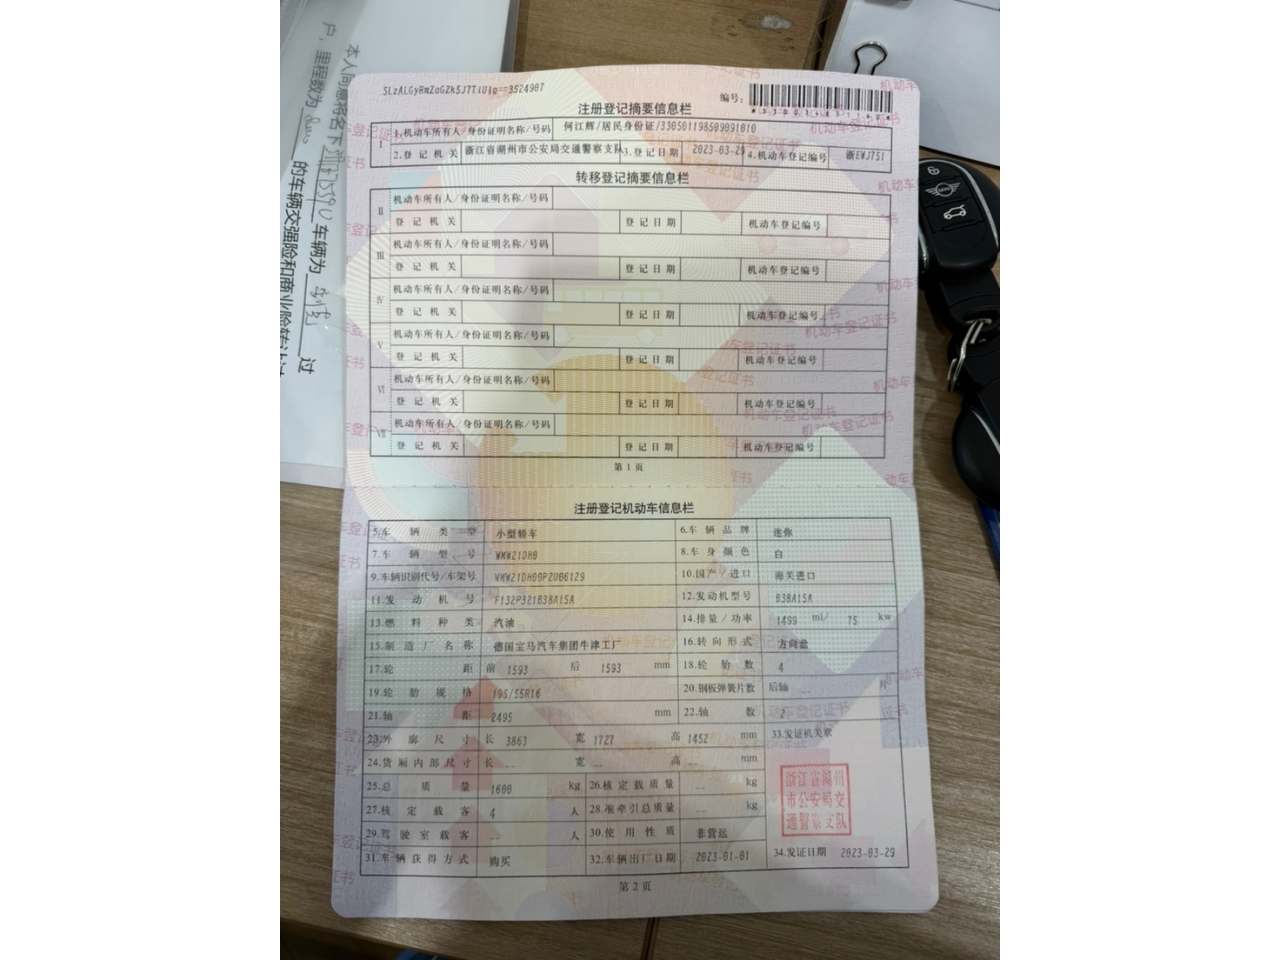 5LzALGyRmZoGZk5J7TiUig==3524907
编号:
注册登记摘要信息栏
I 1.机动车所有人/身份证明名称/号码 何江辉/居民身份证/330501198509091010
2.登记机关 浙江省湖州市公安局交通警察支队 3.登记日期 2023-03-29 4.机动车登记编号 浙EWJ751
转移登记摘要信息栏
II 机动车所有人/身份证明名称/号码
登记机关 登记日期 机动车登记编号
III 机动车所有人/身份证明名称/号码
登记机关 登记日期 机动车登记编号
IV 机动车所有人/身份证明名称/号码
登记机关 登记日期 机动车登记编号
V 机动车所有人/身份证明名称/号码
登记机关 登记日期 机动车登记编号
VI 机动车所有人/身份证明名称/号码
登记机关 登记日期 机动车登记编号
VII 机动车所有人/身份证明名称/号码
登记机关 登记日期 机动车登记编号
第1页
注册登记机动车信息栏
5.车辆类型 小型轿车 6.车辆品牌 迷你
7.车辆型号 WMW21DH0 8.车身颜色 白
9.车辆识别代号/车架号 WMW21DH00P2U06129 10.国产/进口 海关进口
11.发动机号 F132P321B38A15A 12.发动机型号 B38A15A
13.燃料种类 汽油 14.排量/功率 1499 ml/ 75 kw
15.制造厂名称 德国宝马汽车集团牛津工厂 16.转向形式 方向盘
17.轮距 前 1593 后 1593 mm 18.轮胎数 4
19.轮胎规格 195/55R16 20.钢板弹簧片数 后轴 -- 片
21.轴距 2495 mm 22.轴数 2
23.外廓尺寸 长 3863 宽 1727 高 1452 mm 33.发证机关章
24.货厢内部尺寸 长 -- 宽 -- 高 -- mm
25.总质量 1600 kg 26.核定载质量 -- kg
27.核定载客 4 人 28.准牵引总质量 -- kg
29.驾驶室载客 -- 人 30.使用性质 非营运
31.车辆获得方式 购买 32.车辆出厂日期 2023-01-01 34.发证日期 2023-03-29
浙江省湖州
市公安局交
通警察支队
第2页
本人同意将名下
车辆为 过
户,里程数为
的车辆交强险和商业险转让过
MINI